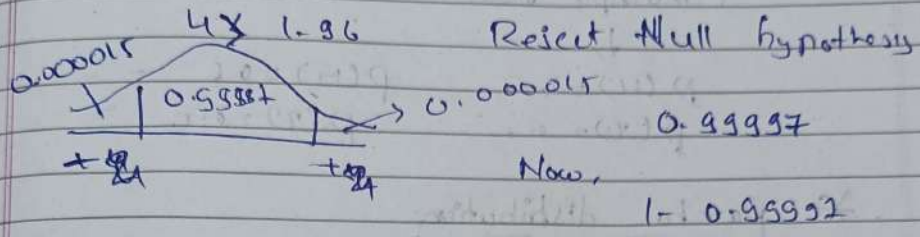 4 > 1.96 Reject Null hypothesis
0.000015
0.000015
0.99997
Now,
1-0.99997